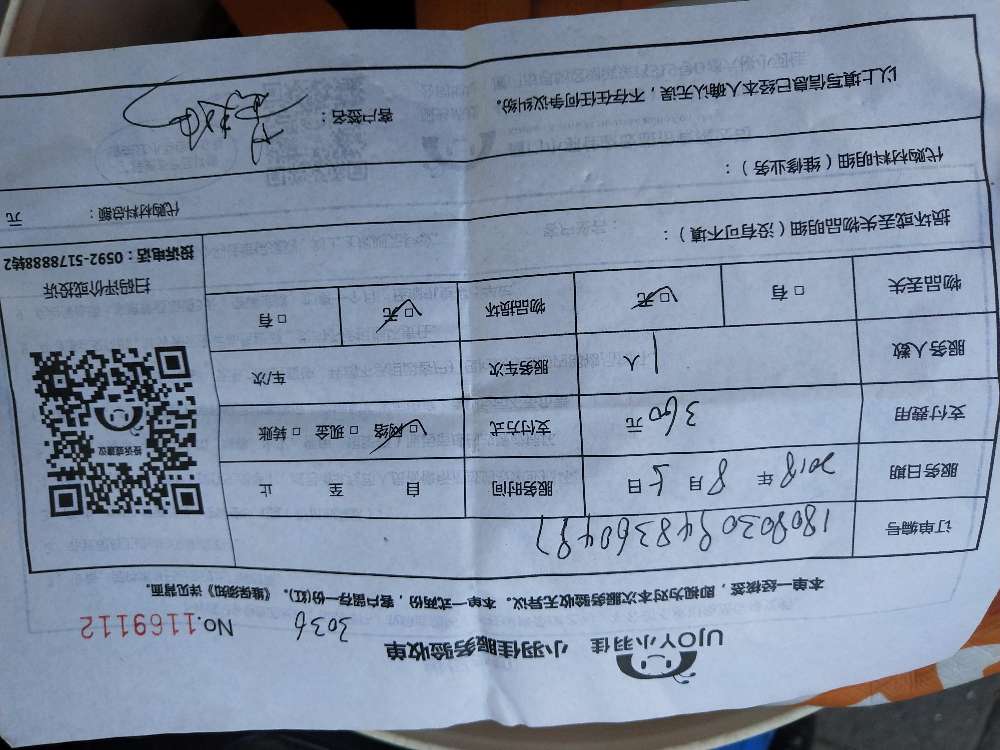 UJOY小羽佳 小羽佳服务验收单 3036 No.1169112
本单一经核签，即视为对本次服务验收无异议。本单一式两份，客户留存一份(红)。《维保须知》详见背面。
订单编号 1808030948360487
服务日期 2018年 8月 5日 服务时间 自 至 止
支付费用 360元 支付方式 □网络 □现金 □转账
服务人数 1人 服务车次 车/次
物品丢失 □有 □无 物品损坏 □无 □有
投诉或建议
扫码评价或投诉
投诉电话：0592-5178888转2
损坏或丢失物品明细（没有可不填）：
代购材料明细（维修业务）： 代购材料总额： 元
以上填写信息已经本人确认无误，不存在任何争议纠纷。 客户签名：